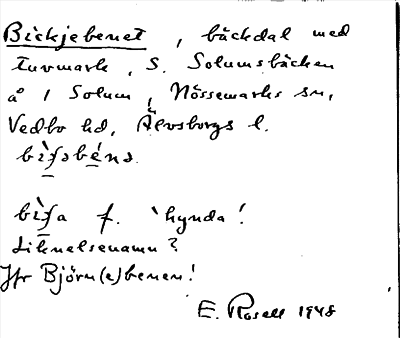 Bickjebenet, bäckdal med
tuvmark, S. Solumsbäcken
å 1 Solum, Nössemarks sn,
Vedbo hd, Älvsborgs l.
bìʃəbéns

bìʃa f. 'hynda'.
Liknelsenamn?
Jfr Björn(e)benen!
E. Rosell 1948